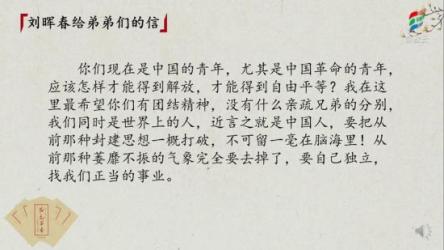 刘晖春给弟弟们的信
你们现在是中国的青年，尤其是中国革命的青年，
应该怎样才能得到解放，才能得到自由平等？我在这
里最希望你们有团结精神，没有什么亲疏兄弟的分别，
我们同时是世界上的人，近言之就是中国人，要把从
前那种封建思想一概打破，不可留一毫在脑海里！从
前那种萎靡不振的气象完全要去掉了，要自己独立，
找我们正当的事业。